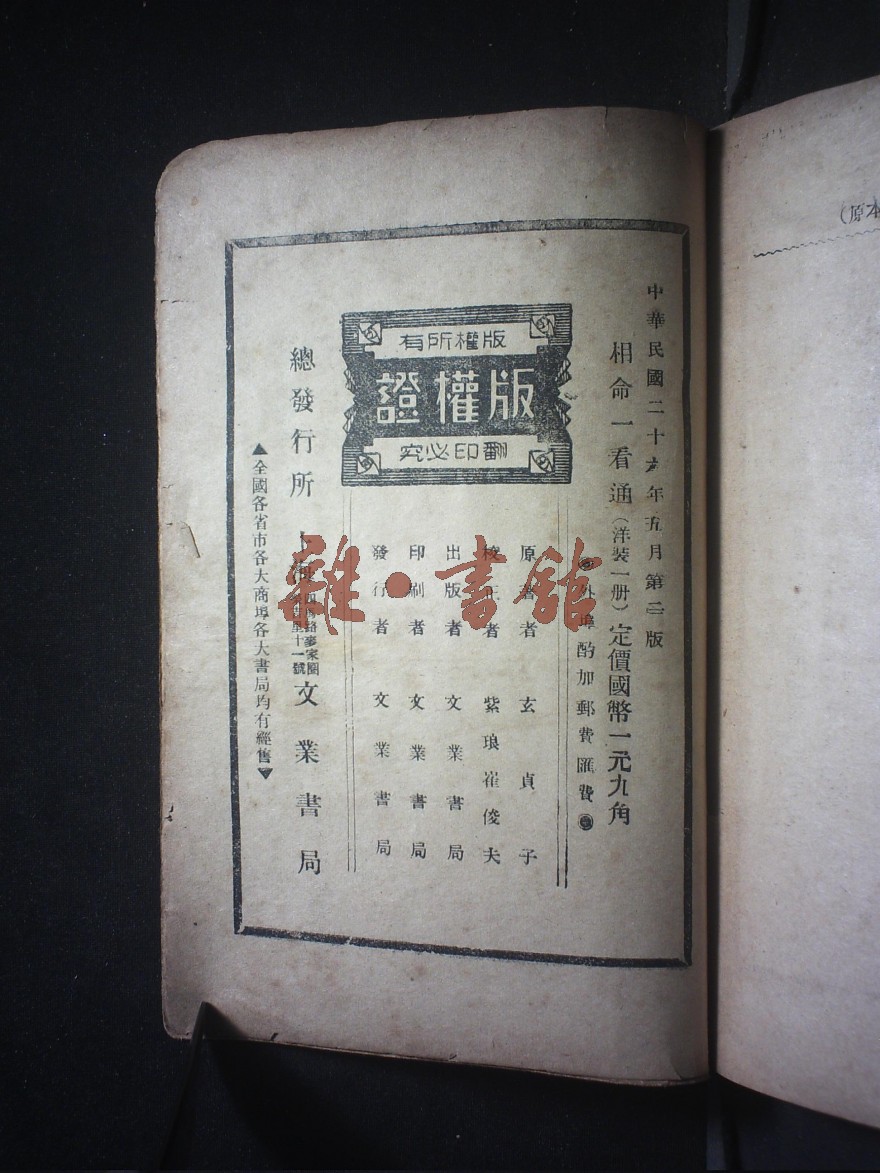 中華民國二十六年五月第三版
相命一看通(洋裝一册)定價國幣一元九角
外埠酌加郵費匯費
版權所有
版權證
翻印必究
原著者 玄貞子
校正者 紫琅崔俊夫
出版者 文業書局
印刷者 文業書局
發行者 文業書局
總發行所 上海四馬路麥家圈 十一號 文業書局
▲全國各省市各大商埠各大書局均有經售▼
雜·書館
(原本